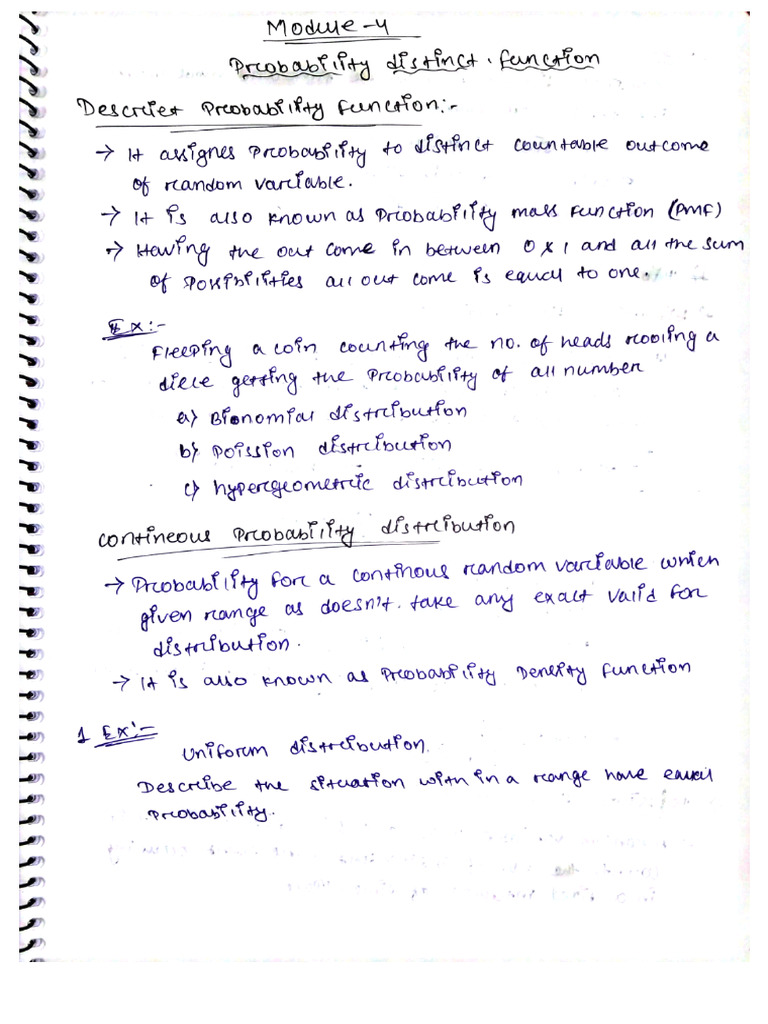 Module-4
Probability distinct. function
Descriet Probability function:-
→ It assignes Probability to distinct countable outcome
of random variable.
→ It is also known as Probability mass function (PMF)
→ Having the out come in between 0 x 1 and all the sum
of Possibilities all out come is equal to one.
Ex:-
Fleeping a coin counting the no. of heads rooling a
diece getting the Probability of all number
a) Bionomial distribution
b) Poission distribution
c) hypergeometric distribution
Contineous Probability distribution
→ Probability for a continous random variable which
given range as doesn't take any exact valid for
distribution.
→ It is also known as Probability Density function
1 Ex:-
Uniform distribution.
Describe the situation with in a range have equal
Probability.